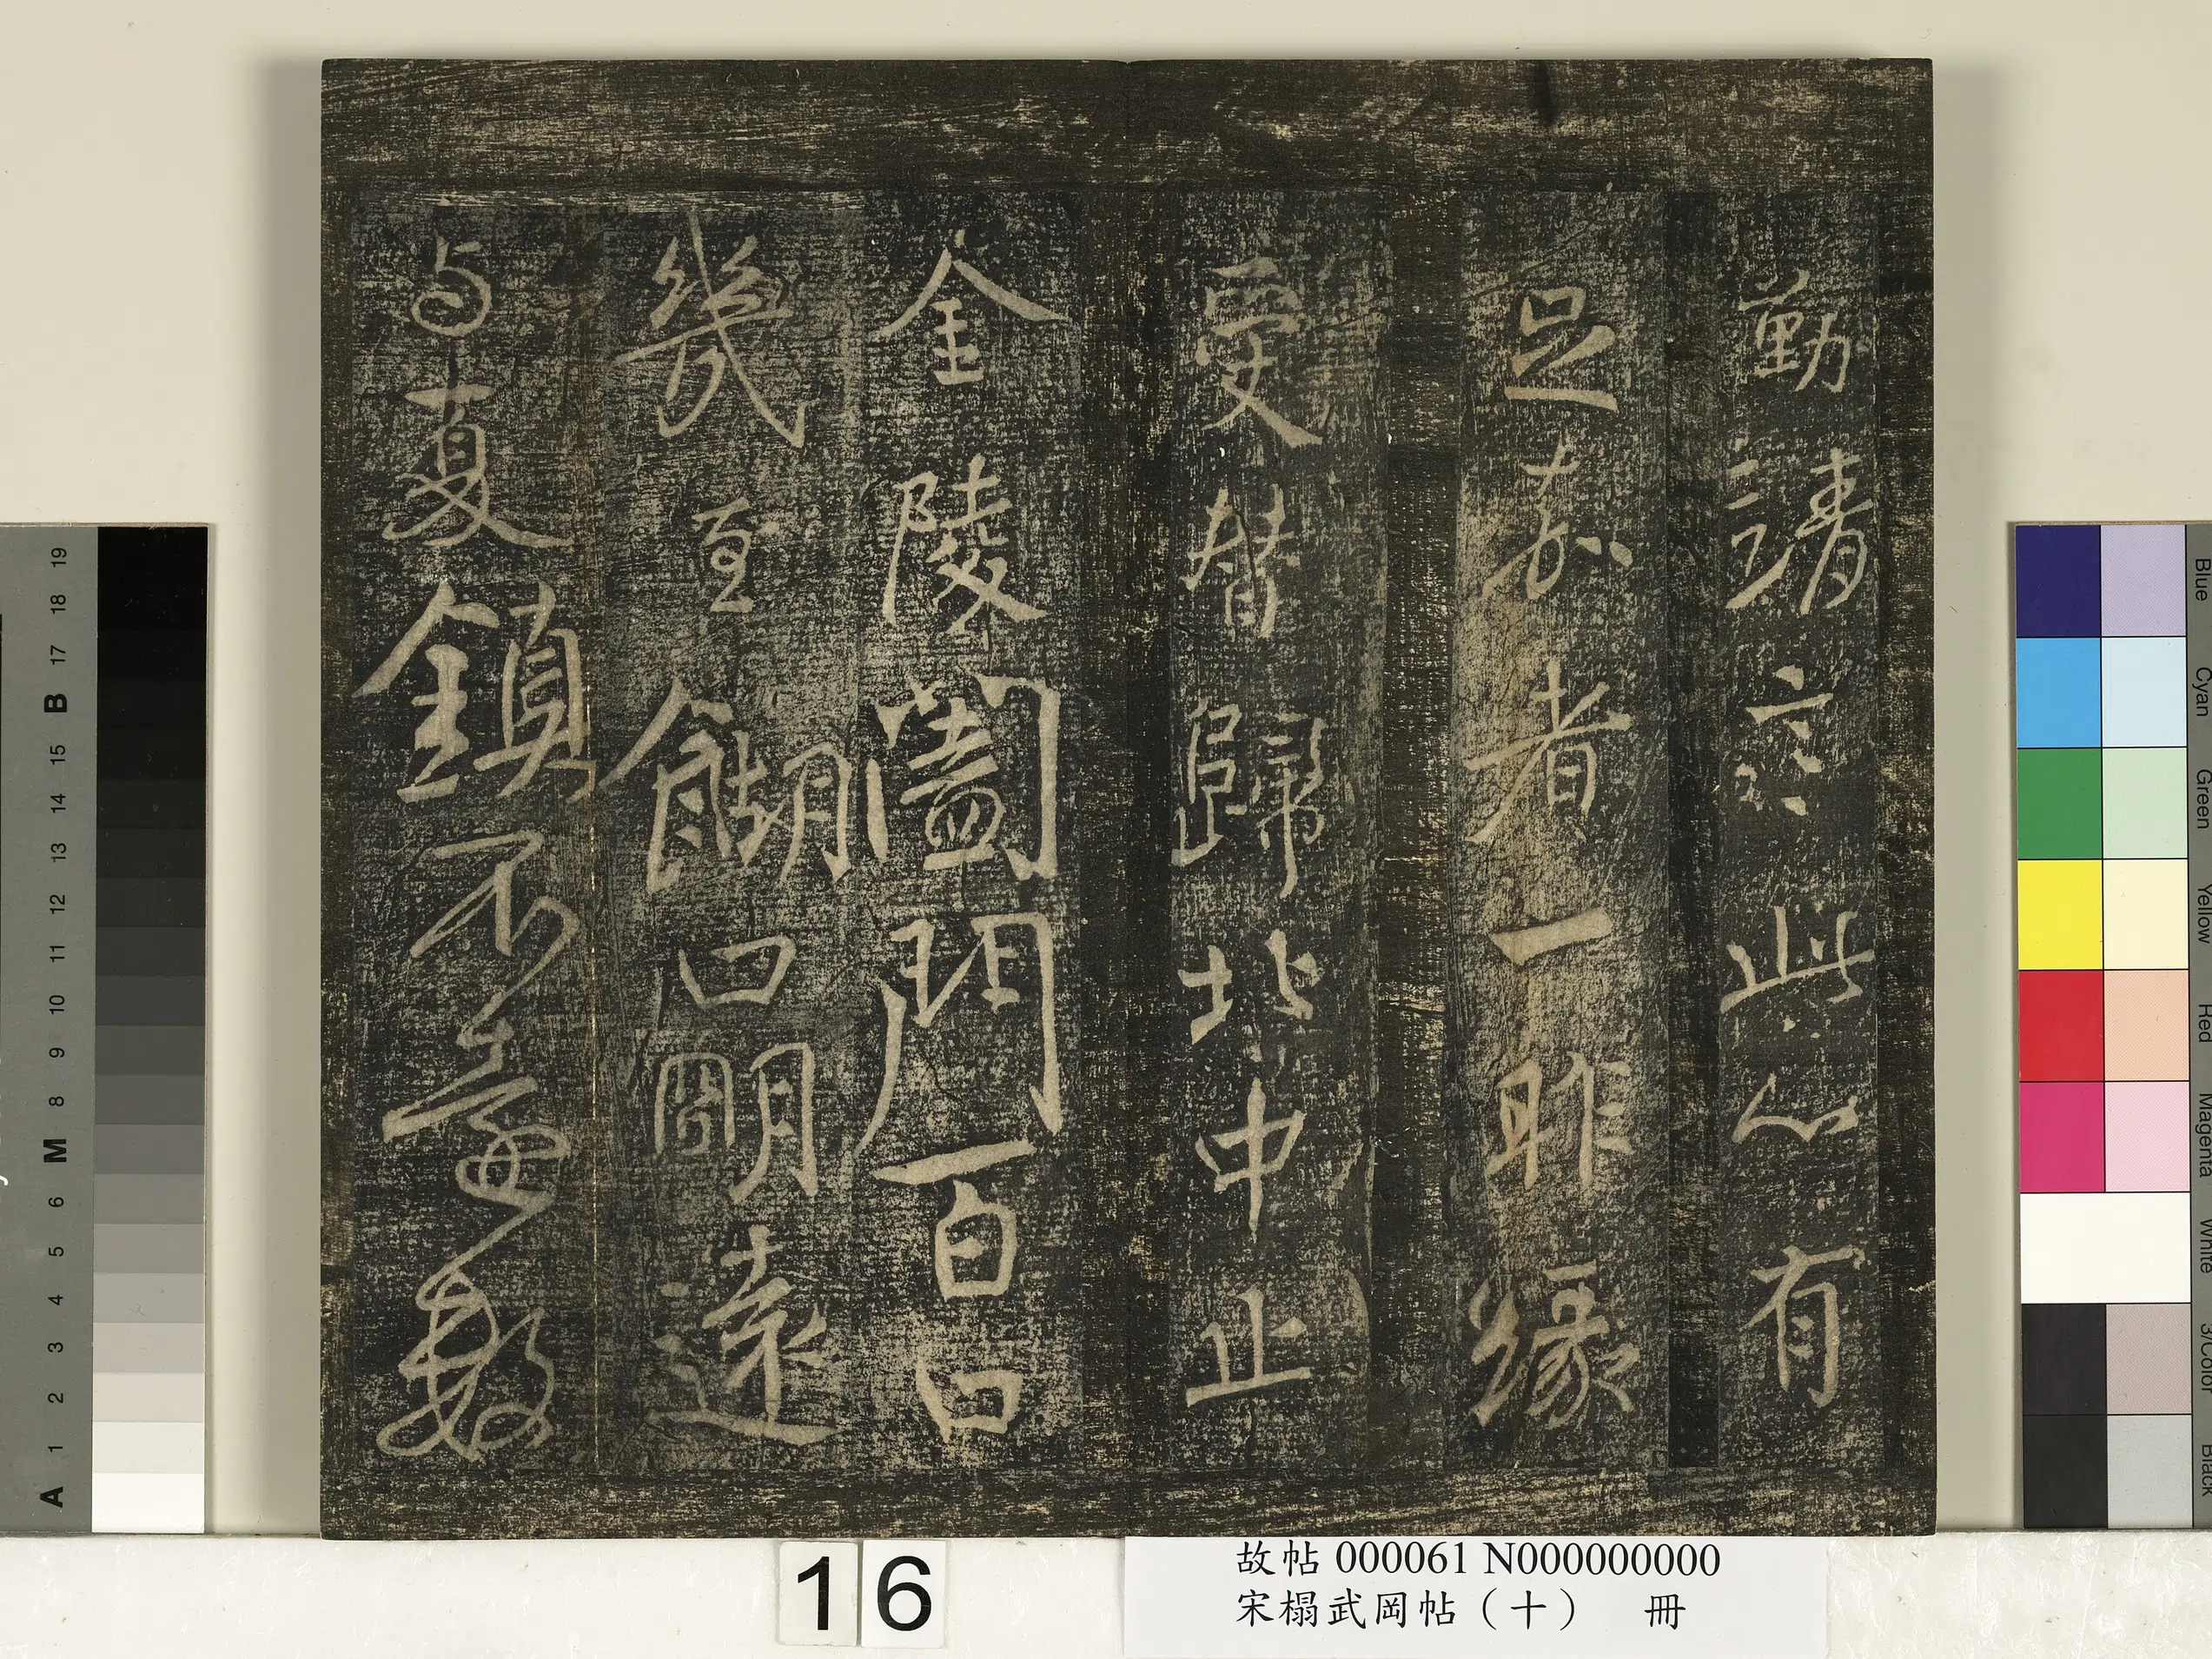 勤靖言此心有
足嘉者一昨緣
受替歸北中止
金陵闔門百口
幾至餬口明遠
与夏鎮不遠數
16
故帖 000061 N000000000
宋榻武岡帖（十） 冊
A 1 2 3 4 5 6 M 8 9 10 11 12 13 14 15 B 17 18 19
Blue
Cyan
Green
Yellow
Red
Magenta
White
3/Color
Black